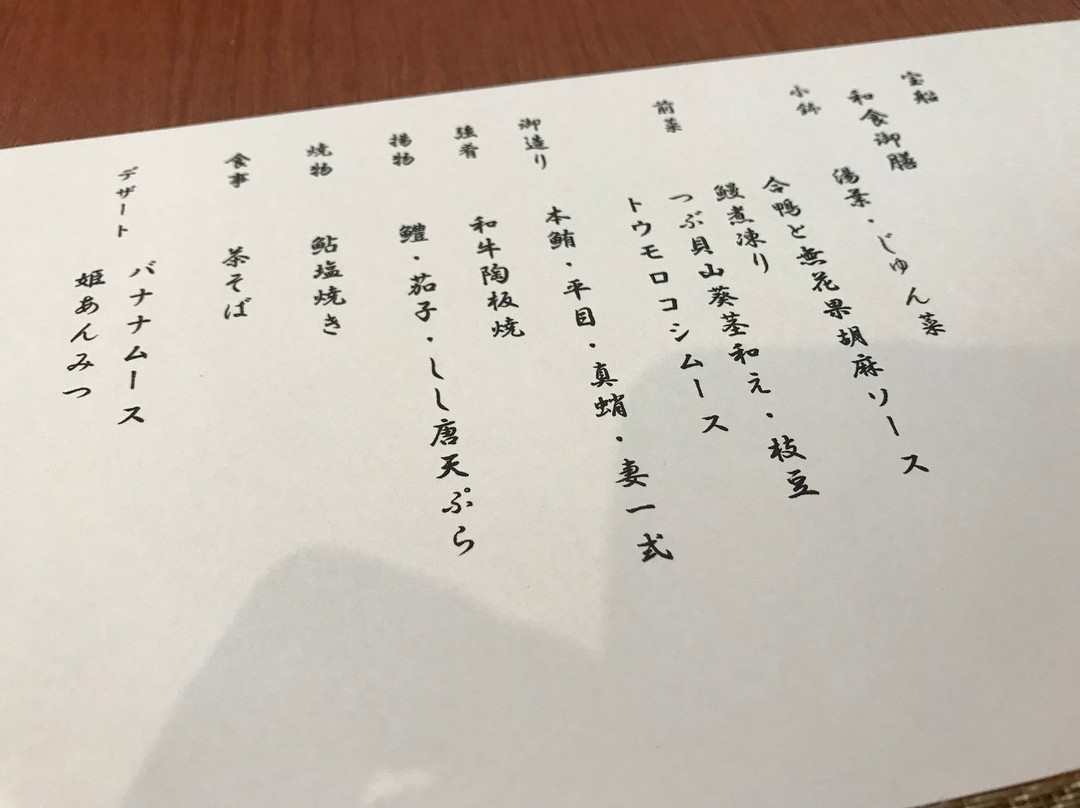 宝船
和食御膳
小鉢
湯葉・じゅん菜
合鴨と無花果胡麻ソース
前菜
鰻煮凍り
つぶ貝山葵茎和え・枝豆
トウモロコシムース
御造り
本鮪・平目・真蛸・妻一式
強肴
和牛陶板焼
揚物
鱧・茄子・しし唐天ぷら
焼物
鮎塩焼き
食事
茶そば
デザート
バナナムース
姫あんみつ